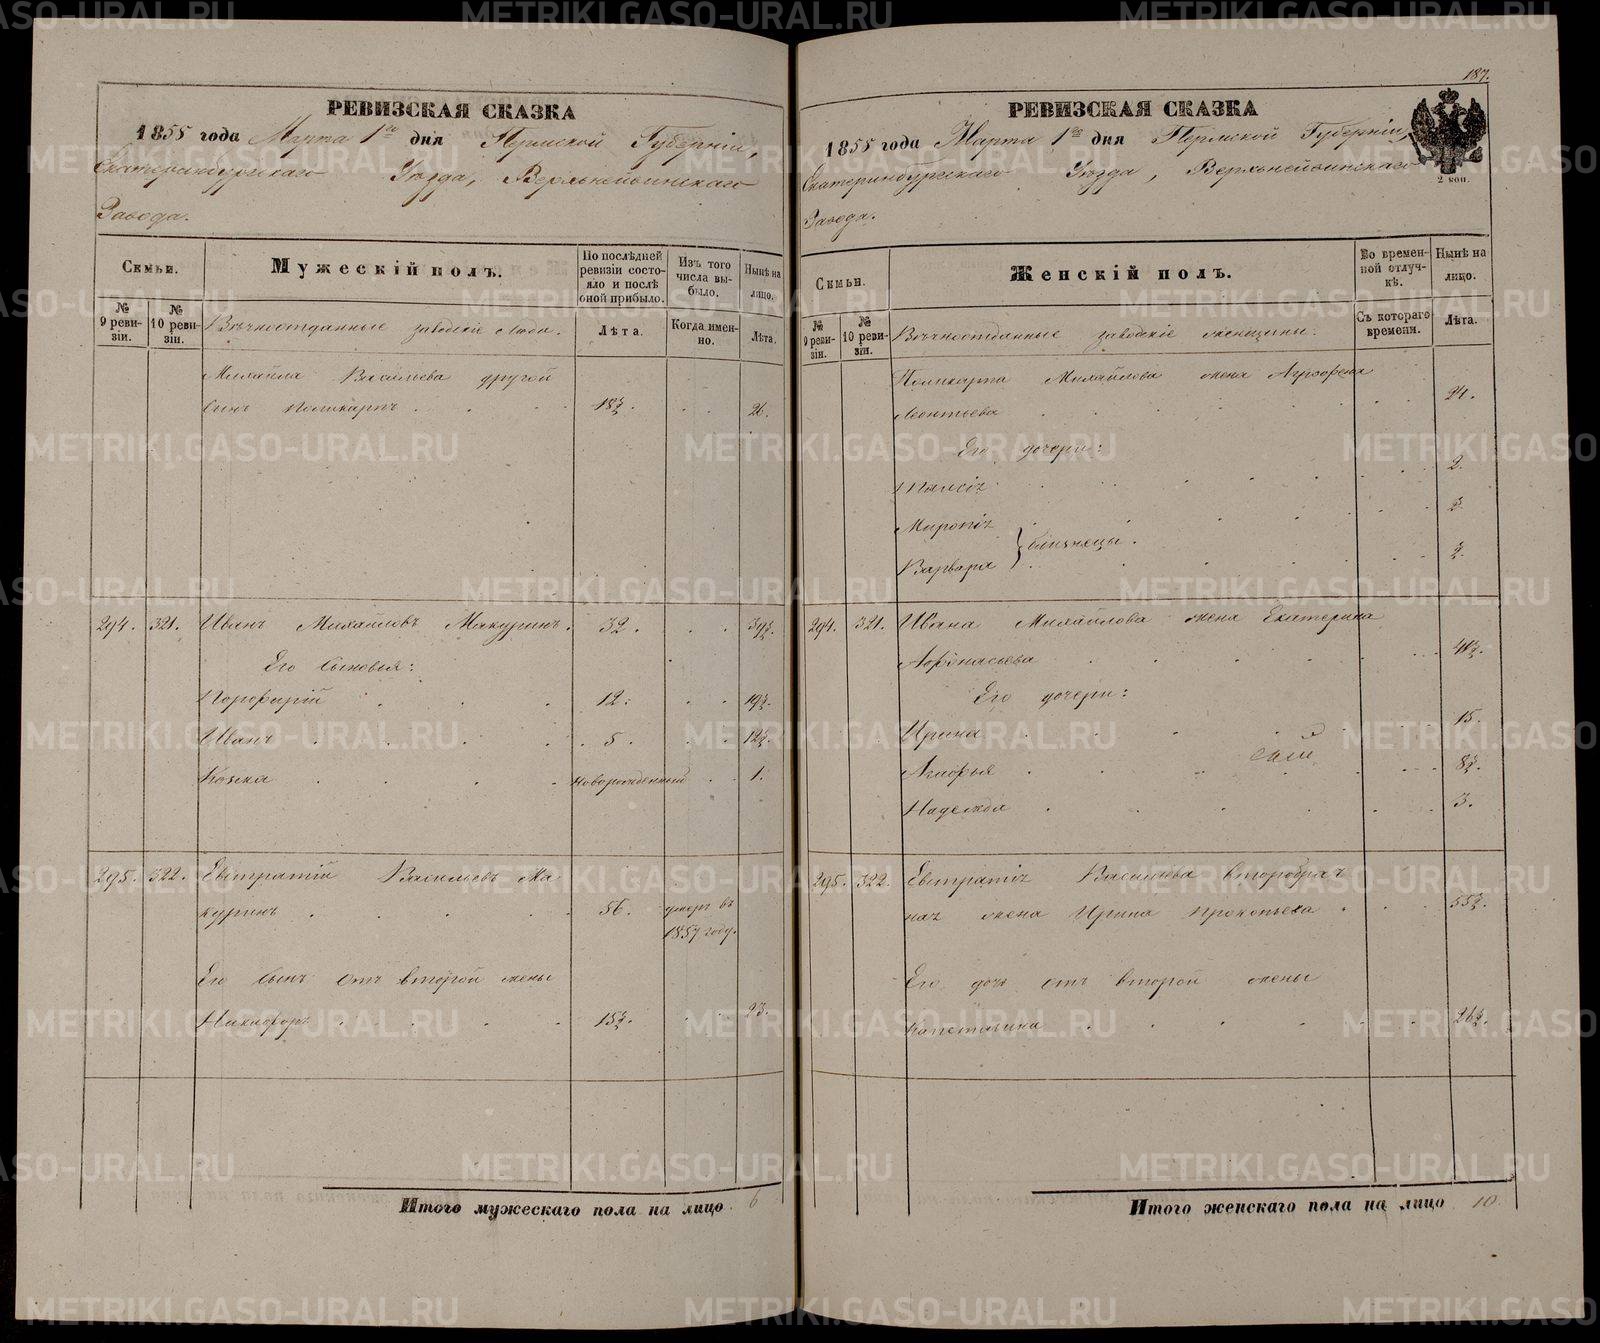 187.
РЕВИЗСКАЯ СКАЗКА
1855 года Марта 1го дня Пермской Губерніи,
Екатеринбургскаго Уезда, Верхънейвинскаго
Завода.
Семьи.
Мужескій полъ.
По послѣдней ревизіи состояло и послѣ оной прибыло.
Изъ того числа выбыло.
Нынѣ на лицо.
№ 9 ревизіи.
№ 10 ревизіи.
Вѣчноотданные заводскіе люди.
Лѣта.
Когда именно.
Лѣта.
Михайла Васильева другой
сынъ Поликарпъ 18½. 26.
294. 321. Иванъ Михайловъ Мякуринъ. 32. 39½.
Его сыновья:
Порофирій 12. 19½.
Иванъ 5. 12½.
Козма новорожденный 1.
295. 322. Евстратій Васильевъ Мя
куринъ 56. умеръ въ
1857 году.
Его сынъ отъ второй жены
Никифоръ 15½. 23.
Итого мужескаго пола на лицо 6
РЕВИЗСКАЯ СКАЗКА
1855 года Марта 1го дня Пермской Губерніи,
Екатеринбургскаго Уезда, Верхънейвинскаго
Завода.
2 коп.
Семьи.
Женскій полъ.
Во временной отлучкѣ.
Нынѣ на лицо.
№ 9 ревизіи.
№ 10 ревизіи.
Вѣчноотданные заводскіе женщины.
Съ котораго времени.
Лѣта.
Поликарпа Михайлова жена Агрофена
Леонтьева 24.
Его дочери:
2.
Миропія
Варвара } близняцы. ½.
294. 321. Ивана Михайлова жена Екатерина
Афонасьева 41½.
Его дочери:
Ирина 15.
Агафья 8½.
Надежда 3.
295. 322. Евстратія Васильева второбрач
ная жена Ирина Прокопьева 55½.
Его дочь отъ второй жены
Капетолина 26½.
Итого женскаго пола на лицо 10.
METRIKI.GASO-URAL.RU